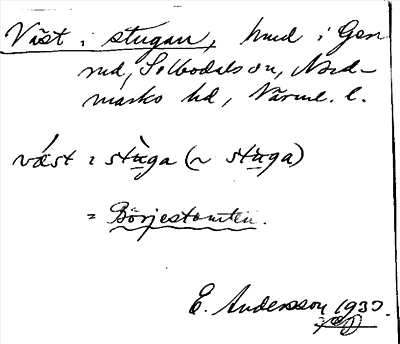 Väst i stugan, hmd i Gen
rud, Silbodals sn, Nord-
marks hd, Värml. l.
vǽst i stùga (~ stùga)
= Börjestomten.
E. Andersson 193